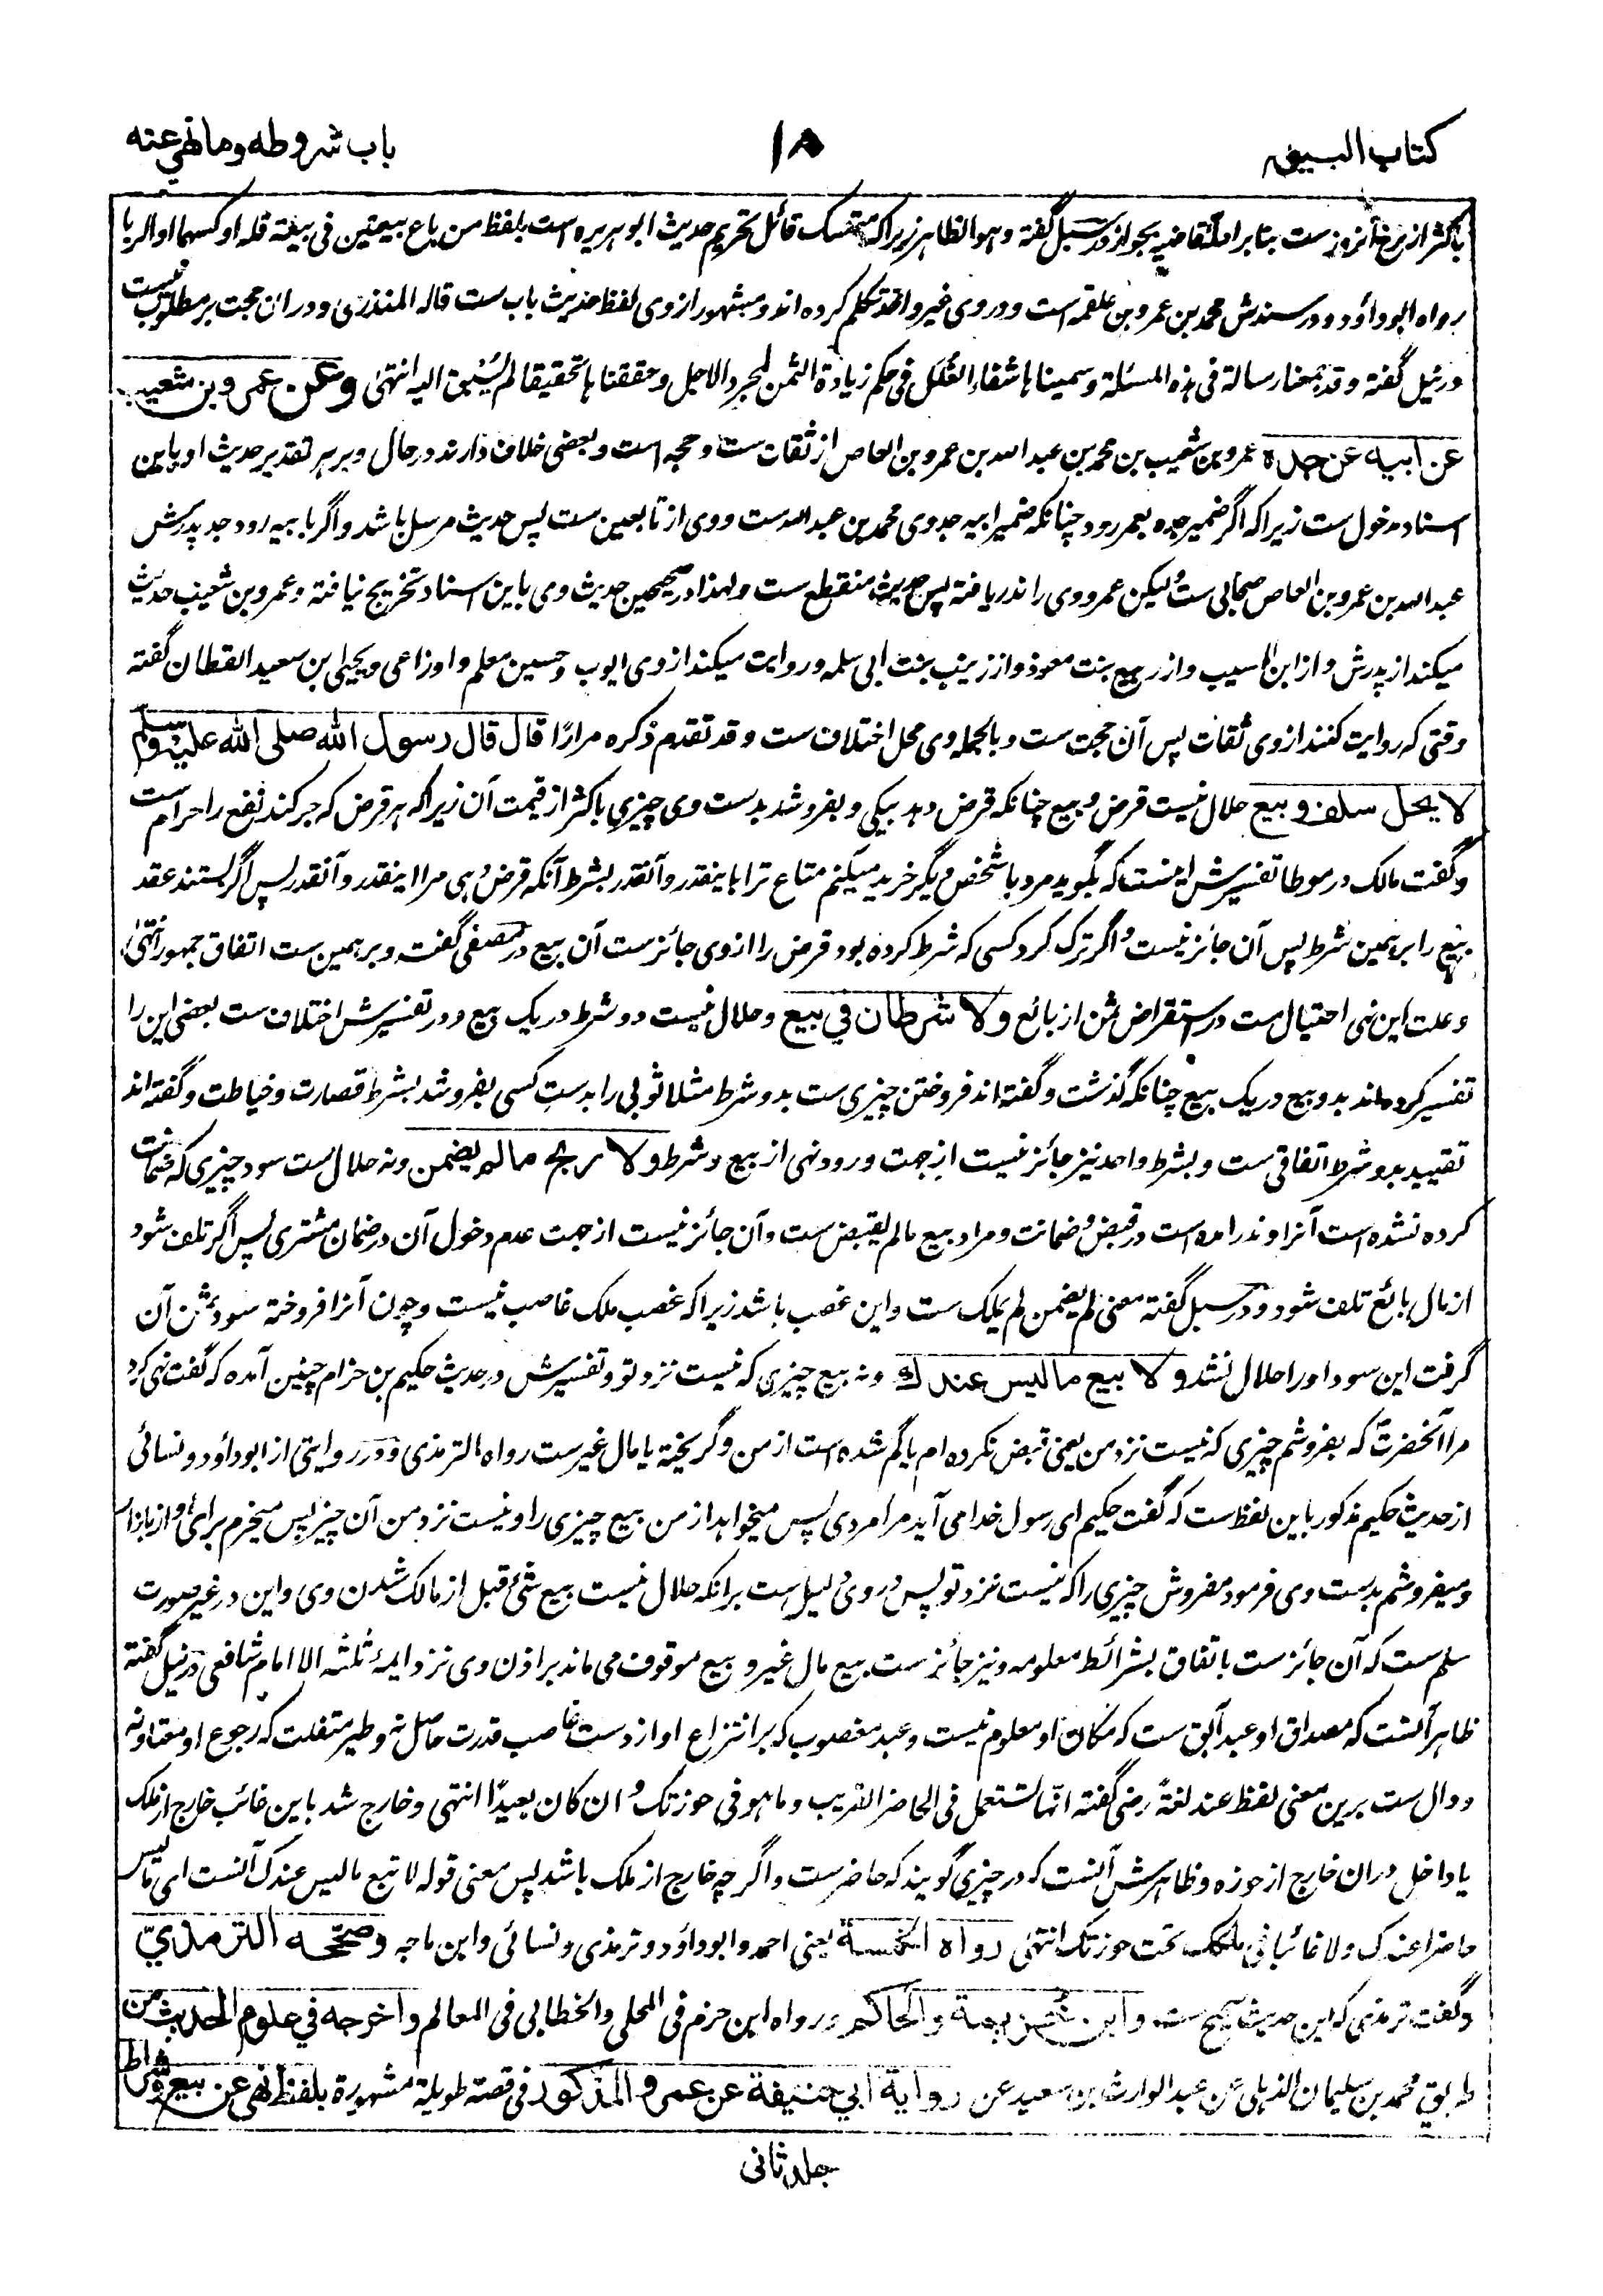 کتاب البیوع
۱۸
باب شروطه وما نهي عنه
باکثر از نرخ آنروزست بنا بر ادلۂ قاضیه بجواز ودر سبل گفته وهو الظاهر زیراکه متمسک قائل بتحریم حدیث ابوهریره است بلفظ من باع بیعتین فی بیعة فله اوکسهما او الربا
رواه ابوداؤد ودر سندش محمد بن عمرو بن علقمه است ودر وی غیر واحد تکلم کرده اند ومشهور از وی لفظ حدیث باب ست قاله المنذری ودران حجت بر مطلوب نیست
ودر نیل گفته وقد جمعنا رسالة فی هذه المسئلة وسمیناها شفاء الغلل فی حکم زیادة الثمن لمجرد الاجل وحققناها تحقیقا لم یُسْبَق الیه انتهی وعن عمرو بن شعیب
عن ابیه عن جده عمرو بن شعیب بن محمد بن عبد الله بن عمرو بن العاص از ثقات ست وحجه است وبعضی خلاف دارند در حال وبر هر تقدیر حدیث او باین
اسناد مدخول ست زیراکه اگر ضمیر جده بعمرو رود چنانکه ضمیر ابیه جد وی محمد بن عبد الله ست ووی از تابعین ست پس حدیث مرسل باشد واگر بابیه رود جد پدرش
عبد الله بن عمرو بن العاص صحابی ست ولیکن عمرو وی را ندریافته پس حدیث منقطع ست ولهذا در صحیحین حدیث وی باین اسناد تخریج نیافته وعمرو بن شعیب حدیث
میکند از پدرش واز ابن المسیب واز ربیع بنت معوذ واز زینب بنت ابی سلمه وروایت میکند از وی ایوب وحسین معلم واوزاعی ویحیی بن سعید القطان گفته
وقتی که روایت کنند از وی ثقات پس آن حجت ست وبالجمله وی محل اختلاف ست وقد تقدم ذکره مرارًا قال قال رسول الله صلی الله علیه وسلم
لا یحل سلف وبیع حلال نیست قرض وبیع چنانکه قرض دهد بیکی وبفروشد بدست وی چیزی باکثر از قیمت آن زیراکه هر قرض که جر کند نفع را حرام ست
وگفت مالک در موطا تفسیرش اینست که بگوید مرد با شخص دیگر خرید میکنم متاع ترا باینقدر وآنقدر بشرط آنکه قرض دهی مرا اینقدر وآنقدر پس اگر بستند عقد
بیع را برهمین شرط پس آن جائز نیست واگر ترک کرد کسی که شرط کرده بود قرض را از وی جائزست آن بیع در مصفی گفت وبرهمین ست اتفاق جمهور انتهی
وعلت این نهی احتیال ست در استقراض ثمن از بائع ولا شرطان في بیع وحلال نیست دو شرط در یک بیع ودر تفسیرش اختلاف ست بعضی این را
تفسیر کرده اند بدو بیع در یک بیع چنانکه گذشت وگفته اند فروختن چیزی ست بدو شرط مثلا ثوبی را بدست کسی بفروشد بشرط قصارت وخیاطت وگفته اند
تقیید بدو شرط اتفاقی ست وبشرط واحد نیز جائز نیست از جهت ورود نهی از بیع وشرط ولا ربح ما لم یضمن ونه حلال ست سود چیزی که ضمانت
کرده نشده است آنرا وندر آمده است در قبض وضمانت ومراد بیع ما لم یقبض ست وآن جائز نیست از جهت عدم دخول آن در ضمان مشتری پس اگر تلف شود
از مال بائع تلف شود ودر سبل گفته معنی لم یضمن لم یملک ست واین غصب باشد زیراکه غصب ملک غاصب نیست وچون آنرا فروخته سود بثمن آن
گرفت این سود او را حلال نشد ولا بیع ما لیس عندك ونه بیع چیزی که نیست نزد تو وتفسیرش در حدیث حکیم بن حزام چنین آمده که گفت نهی کرد
مرا آنحضرت که بفروشم چیزی که نیست نزد من یعنی قبض نکرده ام یا گم شده است از من وگریخته یا مال غیرست رواه الترمذی ودر روایتی از ابوداؤد ونسائی
از حدیث حکیم مذکور باین لفظ ست که گفت حکیم ای رسول خدا می آید مرا مردی پس میخواهد از من بیع چیزی را ونیست نزد من آن چیز پس میخرم برای او از بازار
ومیفروشم بدست وی فرمود مفروش چیزی را که نیست نزد تو پس در وی دلیل است برانکه حلال نیست بیع شئ قبل از مالک شدن وی واین در غیر صورت
سلم ست که آن جائزست باتفاق بشرائط معلومه ونیز جائز ست بیع مال غیر وبیع موقوف می ماند بر اذن وی نزد ایمۂ ثلثه الا امام شافعی در نیل گفته
ظاهر آنست که مصداق او عبد آبق ست که مکان او معلوم نیست وعبد مغصوب که بر انتزاع او از دست غاصب قدرت حاصل نه وطیر متفلت که رجوع او معتاد نه
ودال ست برین معنی لفظ عند لغةً رضی گفته انها تستعمل فی الحاضر القریب وما هو فی حوزتک وان کان بعیدًا انتهی وخارج شد باین غائب خارج از ملک
یا داخل دران خارج از حوزه وظاهرش آنست که در چیزی گویند که حاضرست واگرچه خارج از ملک باشد پس معنی قوله لا تبع ما لیس عندک آنست ای ما لیس
حاضرا عندک ولا غائبا فی ملکک تحت حوزتک انتهی رواه الخمسة یعنی احمد وابوداؤد وترمذی ونسائی وابن ماجه وصححه الترمذيّ
وگفت ترمذی که این حدیث صحیح ست وابن خزیمة والحاکم ورواه ابن حزم فی المحلی والخطابی فی المعالم واخرجه في علوم الحدیث من
طریق محمد بن سلیمان الذهلی عن عبد الوارث بن سعید عن روایة ابي حنیفة عن عمرو المذکور فی قصة طویلة مشهورة بلفظ نهی عن بیع وشرط
جلد ثانی